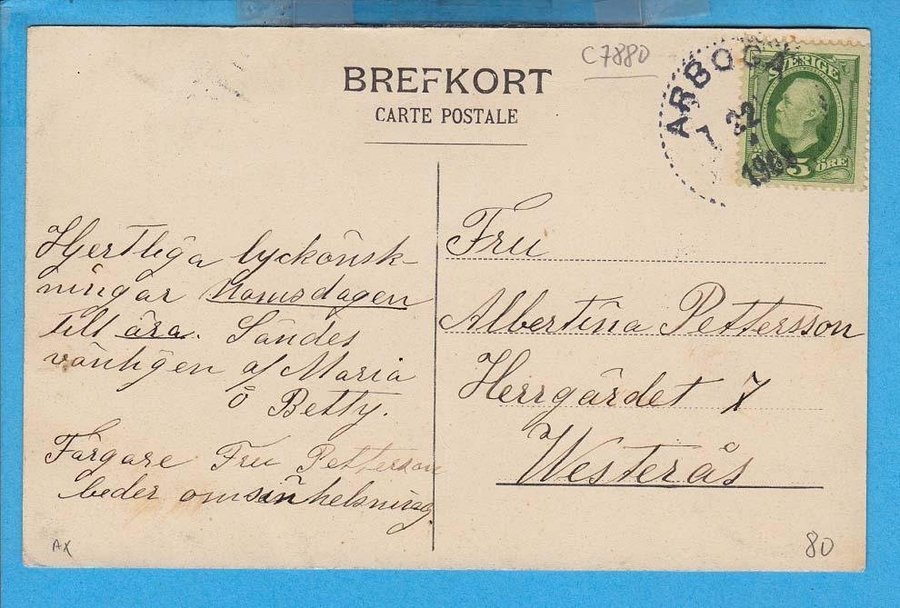 C7880
BREFKORT
CARTE POSTALE
ARBOGA
22
SVERIGE
5 ÖRE
Hjertliga lyckönsk-
ningar Namsdagen
till ära. Sändes
vänligen af Maria
o Betty.
Färgare Fru Petterson
beder om sin helsning.
Fru
Albertina Pettersson
Herrgärdet 7
Westerås
AX
80